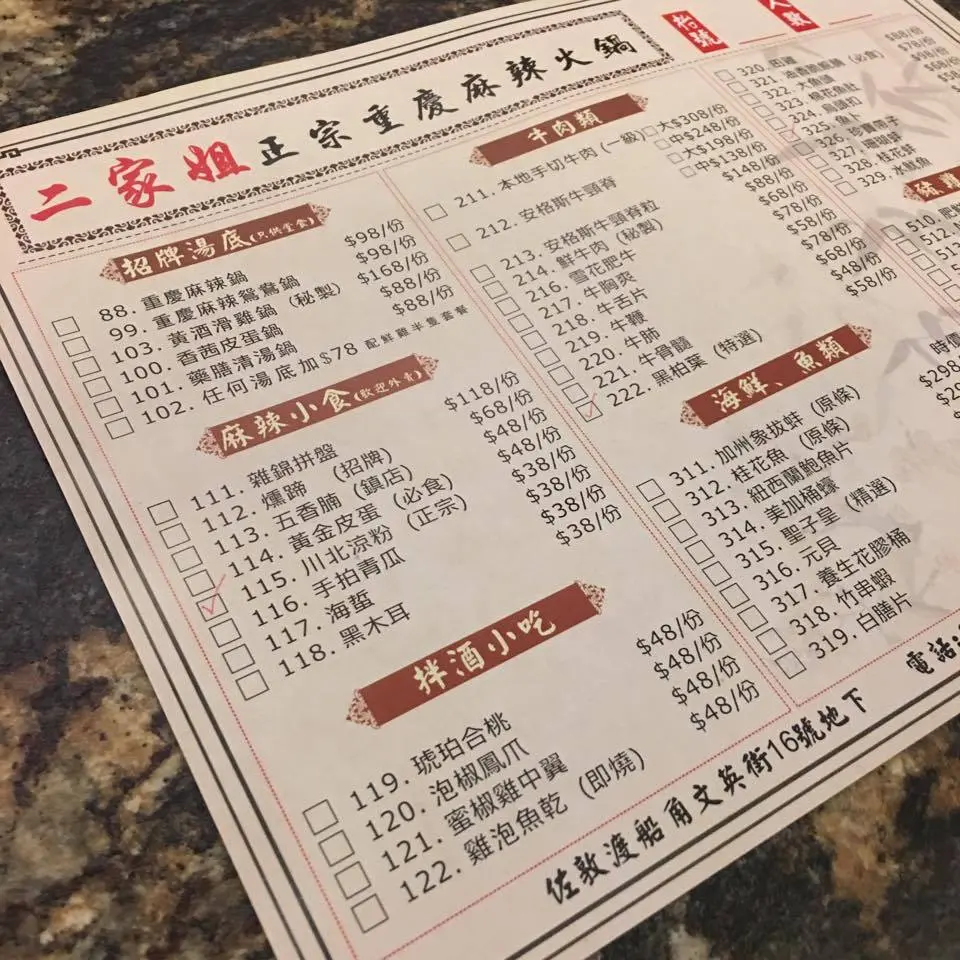 二家姐正宗重慶麻辣火鍋
枱號
人數
招牌湯底(只供堂食)
88. 重慶麻辣鍋 $98/份
99. 重慶麻辣鴛鴦鍋 $98/份
103. 黃酒滑雞鍋 (秘製) $168/份
100. 香西皮蛋鍋 $88/份
101. 藥膳清湯鍋 $88/份
102. 任何湯底加$78 配鮮雞半隻套餐
麻辣小食(歡迎外賣)
111. 雜錦拼盤 $118/份
112. 燻蹄 (招牌) $68/份
113. 五香腩 (鎮店) $48/份
114. 黃金皮蛋 (必食) $48/份
115. 川北涼粉 (正宗) $38/份
116. 手拍青瓜 $38/份
117. 海蜇 $38/份
118. 黑木耳 $38/份
拌酒小吃
119. 琥珀合桃 $48/份
120. 泡椒鳳爪 $48/份
121. 蜜椒雞中翼 $48/份
122. 雞泡魚乾 (即燒) $48/份
牛肉類
211. 本地手切牛肉 (一級) 大$308/份
中$248/份
212. 安格斯牛頸脊 大$198/份
中$138/份
213. 安格斯牛頸脊粒 $148/份
214. 鮮牛肉 (秘製) $88/份
216. 雪花肥牛 $68/份
217. 牛胸夾 $78/份
218. 牛舌片 $58/份
219. 牛鞭 $78/份
220. 牛肺 $68/份
221. 牛骨髓 $48/份
222. 黑柏葉 (特選) $58/份
海鮮、魚類
311. 加州象拔蚌 (原條) 時價
312. 桂花魚 (原條) $298
313. 紐西蘭鮑魚片
314. 美加桶蠔
315. 聖子皇 (精選)
316. 元貝
317. 養生花膠桶
318. 竹串蝦
319. 白膳片
320. $88/份
321. (必食) $78/份
322. 大魚頭
323. 桂花魚肚
324. 魚頭扣
325. 魚卜
326.
327.
328. 桂花蚌
329. 水魷魚
510. 肥
512.
佐敦渡船角文英街16號地下
電話: